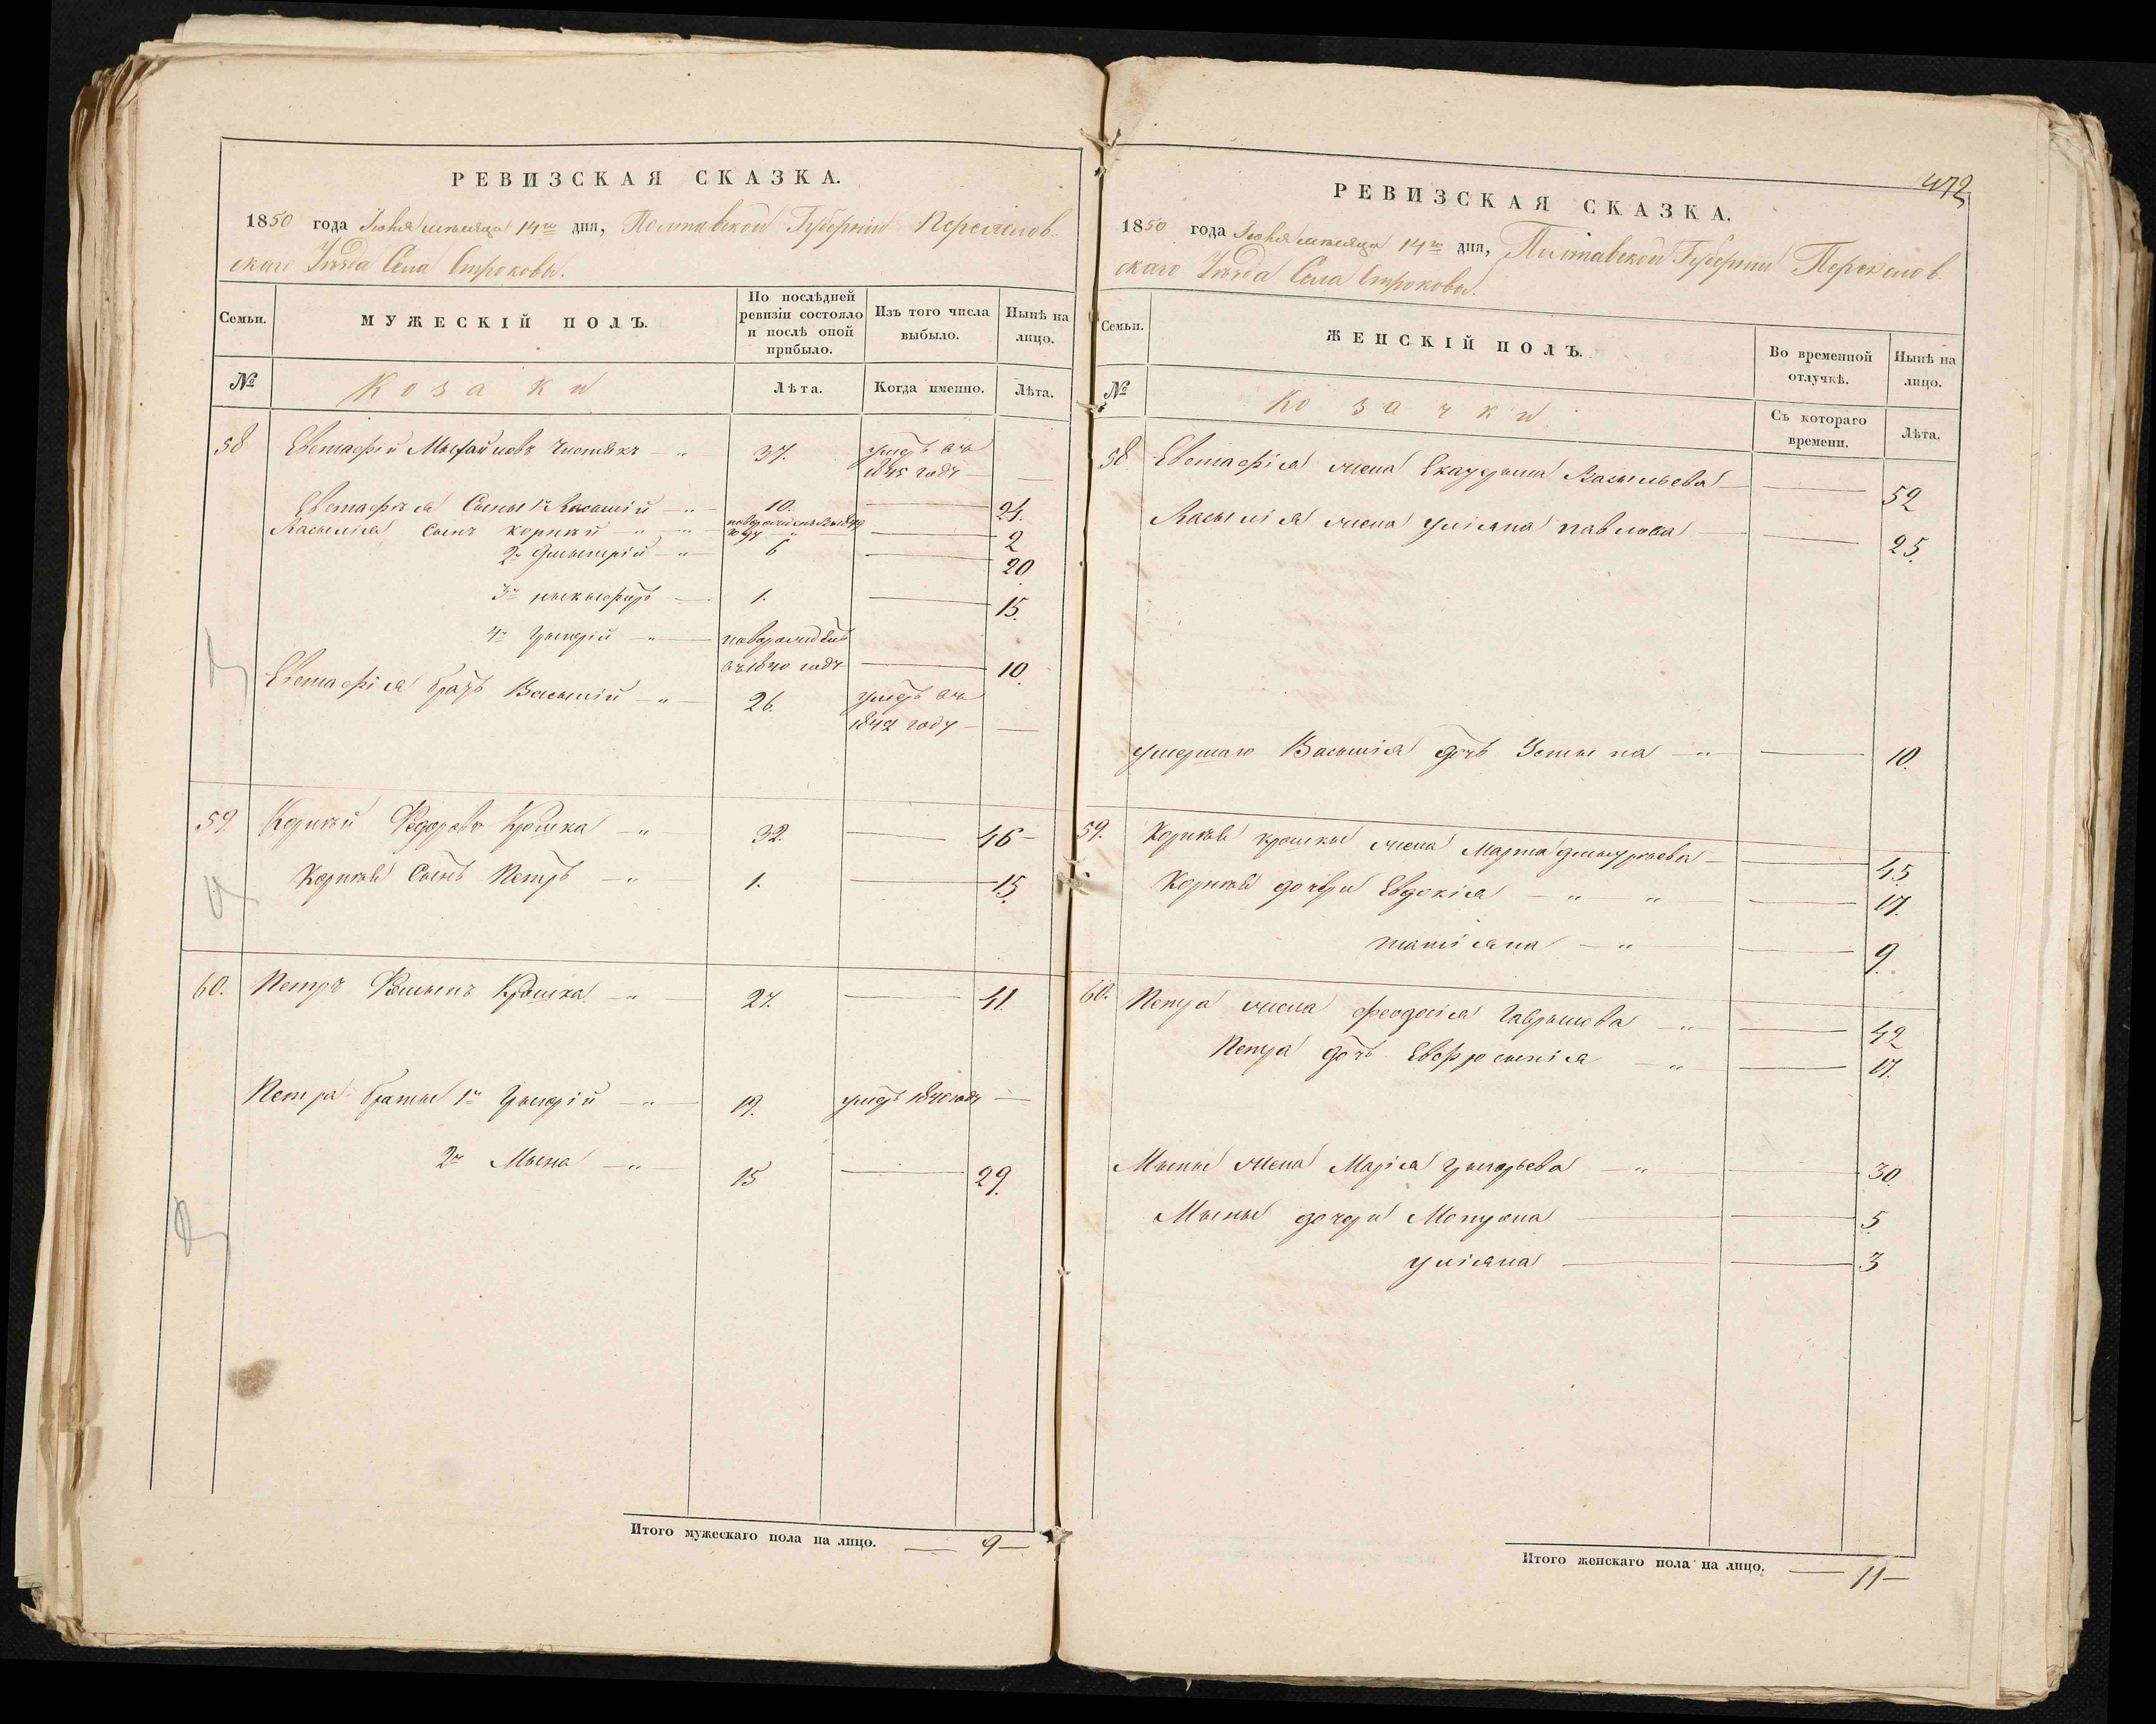 РЕВИЗСКАЯ СКАЗКА.
1850 года Іюня мѣсяца 14го дня, Полтавской Губерніи Переяслов
скаго Уѣзда Села Строковы.
Семьи.
МУЖЕСКІЙ ПОЛЪ.
По послѣдней
ревизіи состояло
и послѣ оной
прибыло.
Изъ того числа
выбыло.
Нынѣ на
лицо.
№
Козаки
Лѣта.
Когда именно.
Лѣта.
58 Евстафій Чистякъ 37. умеръ въ
1845 годѣ
Евстафія Сыны 1й Василій 10. 24.
Василія Сынъ Корнѣй 2
2й Дмытрій 6 20
3й 1. 15.
4й Григорій новорожденъ
въ 1840 годѣ 10.
Евстафія братъ Василій 26. умеръ въ
1842 году
59. Корнѣй Федоровъ Крошка 32. 46
Корнѣя Сынъ Петръ 1. 15.
60. Петръ Крошка 27. 41.
Петра братья 1й Григорій 19. умеръ 1840 годѣ
2й Мына 15 29.
Итого мужескаго пола на лицо. 9
472
РЕВИЗСКАЯ СКАЗКА.
1850 года Іюня мѣсяца 14го дня, Полтавской Губерніи Переяслов
скаго Уѣзда Села Строковы.
Семьи.
ЖЕНСКІЙ ПОЛЪ.
Во временной
отлучкѣ.
Нынѣ на
лицо.
№
Козачки
Съ котораго
времени.
Лѣта.
58. Евстафія жена Екатерина Васильева 52
Василія жена Уліяна Павлова 25.
умершаго Василія дочь Устына 10.
59. Корнѣя Крошкы жена Марта Дмытріева 45.
Корнѣя дочери Евдокія 17.
Татіяна 9.
60. Петра жена Феодосія Гаврылова 42
Петра дочь Евфросынія 17.
Мыны жена Марія Григорьева 30.
Мыны дочери Мотрона 5.
Уліяна 3
Итого женскаго пола на лицо. 11